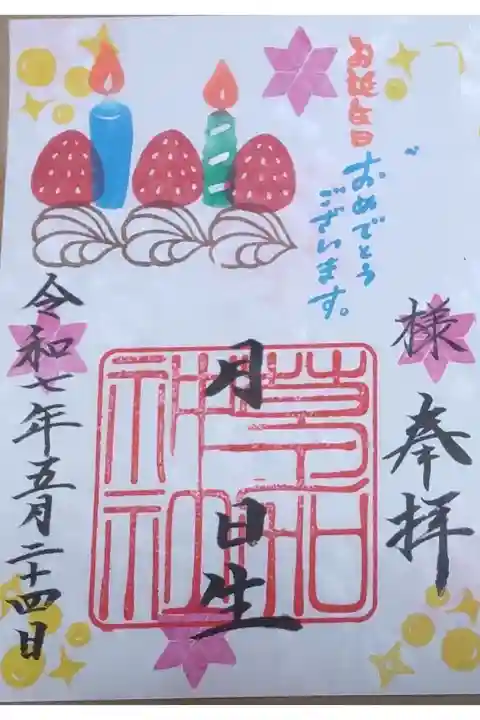 お誕生日
おめでとう
ございます。
様
奉拝
月
日生
令和七年五月二十四日
神社